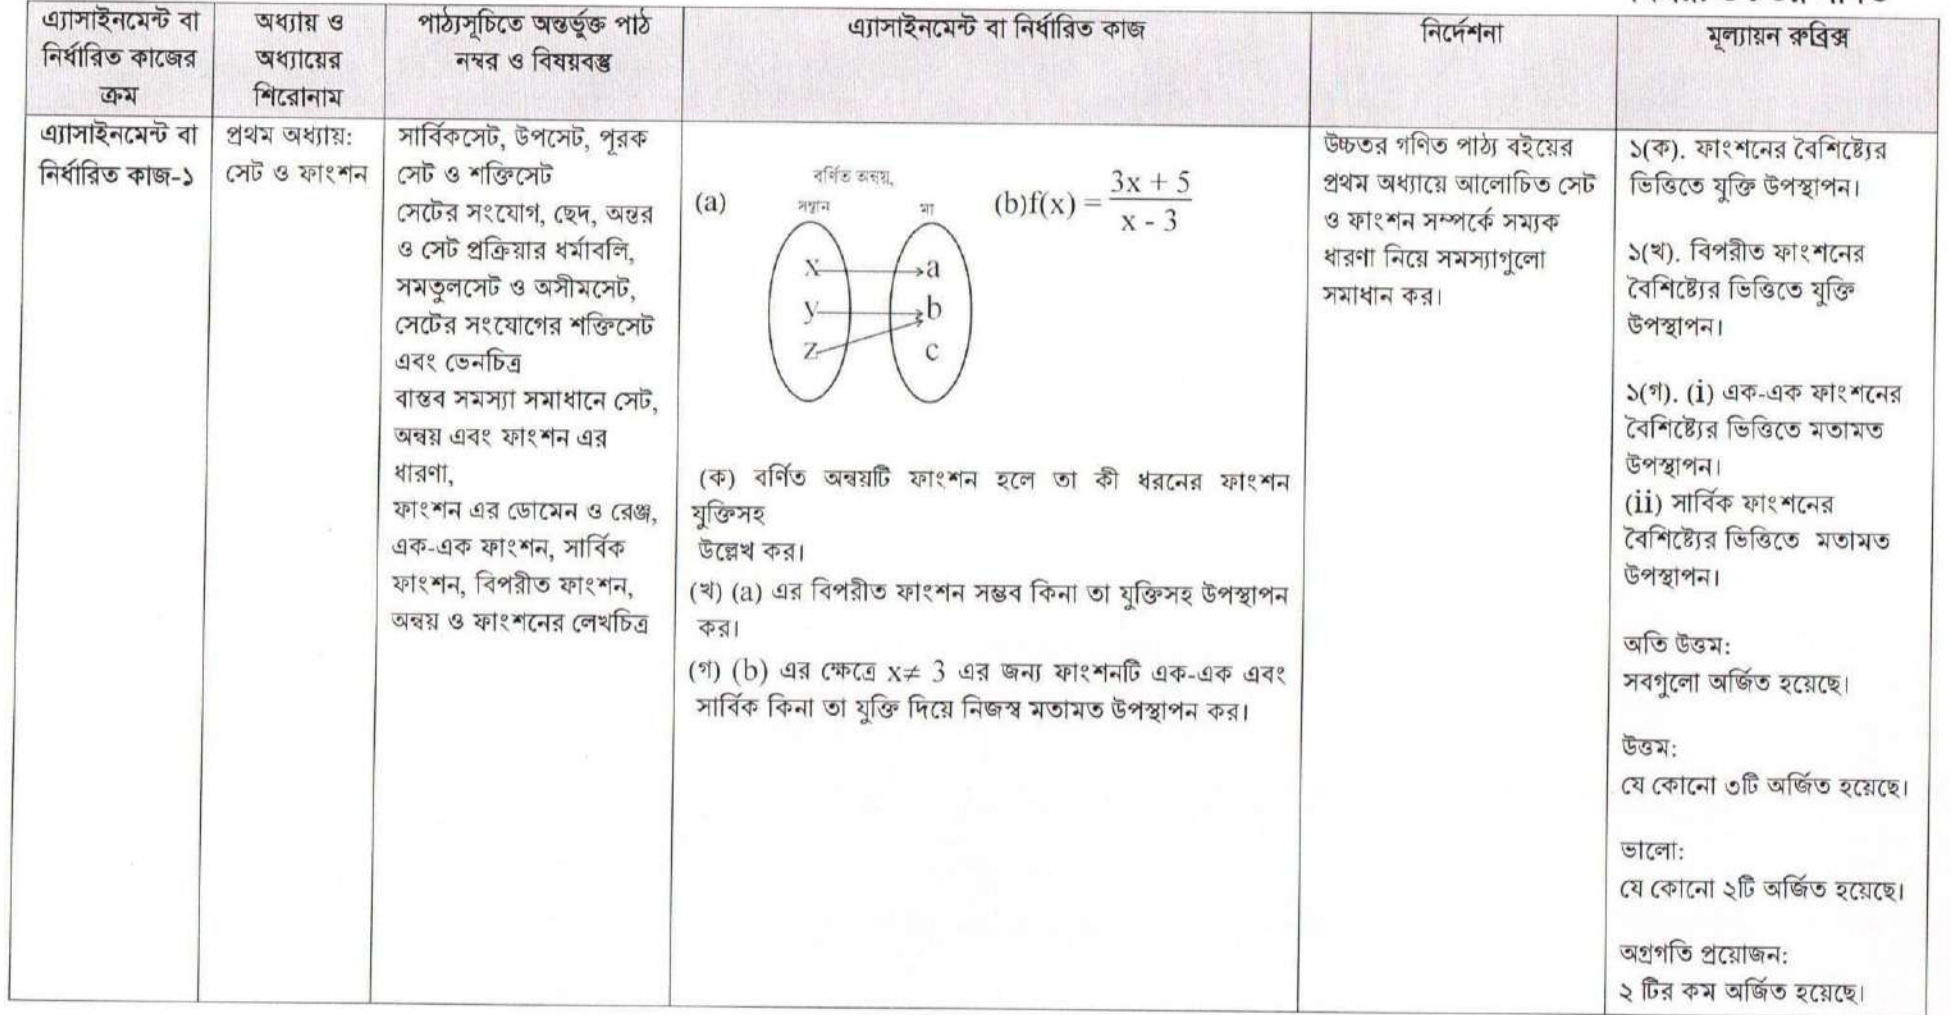 এ্যাসাইনমেন্ট বা
নির্ধারিত কাজের
ক্রম
অধ্যায় ও
অধ্যায়ের
শিরোনাম
পাঠ্যসূচিতে অন্তর্ভুক্ত পাঠ
নম্বর ও বিষয়বস্তু
এ্যাসাইনমেন্ট বা নির্ধারিত কাজ
নির্দেশনা
মূল্যায়ন রুব্রিক্স
এ্যাসাইনমেন্ট বা
নির্ধারিত কাজ-১
প্রথম অধ্যায়:
সেট ও ফাংশন
সার্বিকসেট, উপসেট, পূরক
সেট ও শক্তিসেট
সেটের সংযোগ, ছেদ, অন্তর
ও সেট প্রক্রিয়ার ধর্মাবলি,
সমতুলসেট ও অসীমসেট,
সেটের সংযোগের শক্তিসেট
এবং ভেনচিত্র
বাস্তব সমস্যা সমাধানে সেট,
অন্বয় এবং ফাংশন এর
ধারণা,
ফাংশন এর ডোমেন ও রেঞ্জ,
এক-এক ফাংশন, সার্বিক
ফাংশন, বিপরীত ফাংশন,
অন্বয় ও ফাংশনের লেখচিত্র
(a)
বর্ণিত অন্বয়,
সন্তান
মা
x
y
z
a
b
c
(b)f(x) = 3x + 5
x - 3
(ক) বর্ণিত অন্বয়টি ফাংশন হলে তা কী ধরনের ফাংশন
যুক্তিসহ
উল্লেখ কর।
(খ) (a) এর বিপরীত ফাংশন সম্ভব কিনা তা যুক্তিসহ উপস্থাপন
কর।
(গ) (b) এর ক্ষেত্রে x≠ 3 এর জন্য ফাংশনটি এক-এক এবং
সার্বিক কিনা তা যুক্তি দিয়ে নিজস্ব মতামত উপস্থাপন কর।
উচ্চতর গণিত পাঠ্য বইয়ের
প্রথম অধ্যায়ে আলোচিত সেট
ও ফাংশন সম্পর্কে সম্যক
ধারণা নিয়ে সমস্যাগুলো
সমাধান কর।
১(ক). ফাংশনের বৈশিষ্ট্যের
ভিত্তিতে যুক্তি উপস্থাপন।
১(খ). বিপরীত ফাংশনের
বৈশিষ্ট্যের ভিত্তিতে যুক্তি
উপস্থাপন।
১(গ). (i) এক-এক ফাংশনের
বৈশিষ্ট্যের ভিত্তিতে মতামত
উপস্থাপন।
(ii) সার্বিক ফাংশনের
বৈশিষ্ট্যের ভিত্তিতে মতামত
উপস্থাপন।
অতি উত্তম:
সবগুলো অর্জিত হয়েছে।
উত্তম:
যে কোনো ৩টি অর্জিত হয়েছে।
ভালো:
যে কোনো ২টি অর্জিত হয়েছে।
অগ্রগতি প্রয়োজন:
২ টির কম অর্জিত হয়েছে।